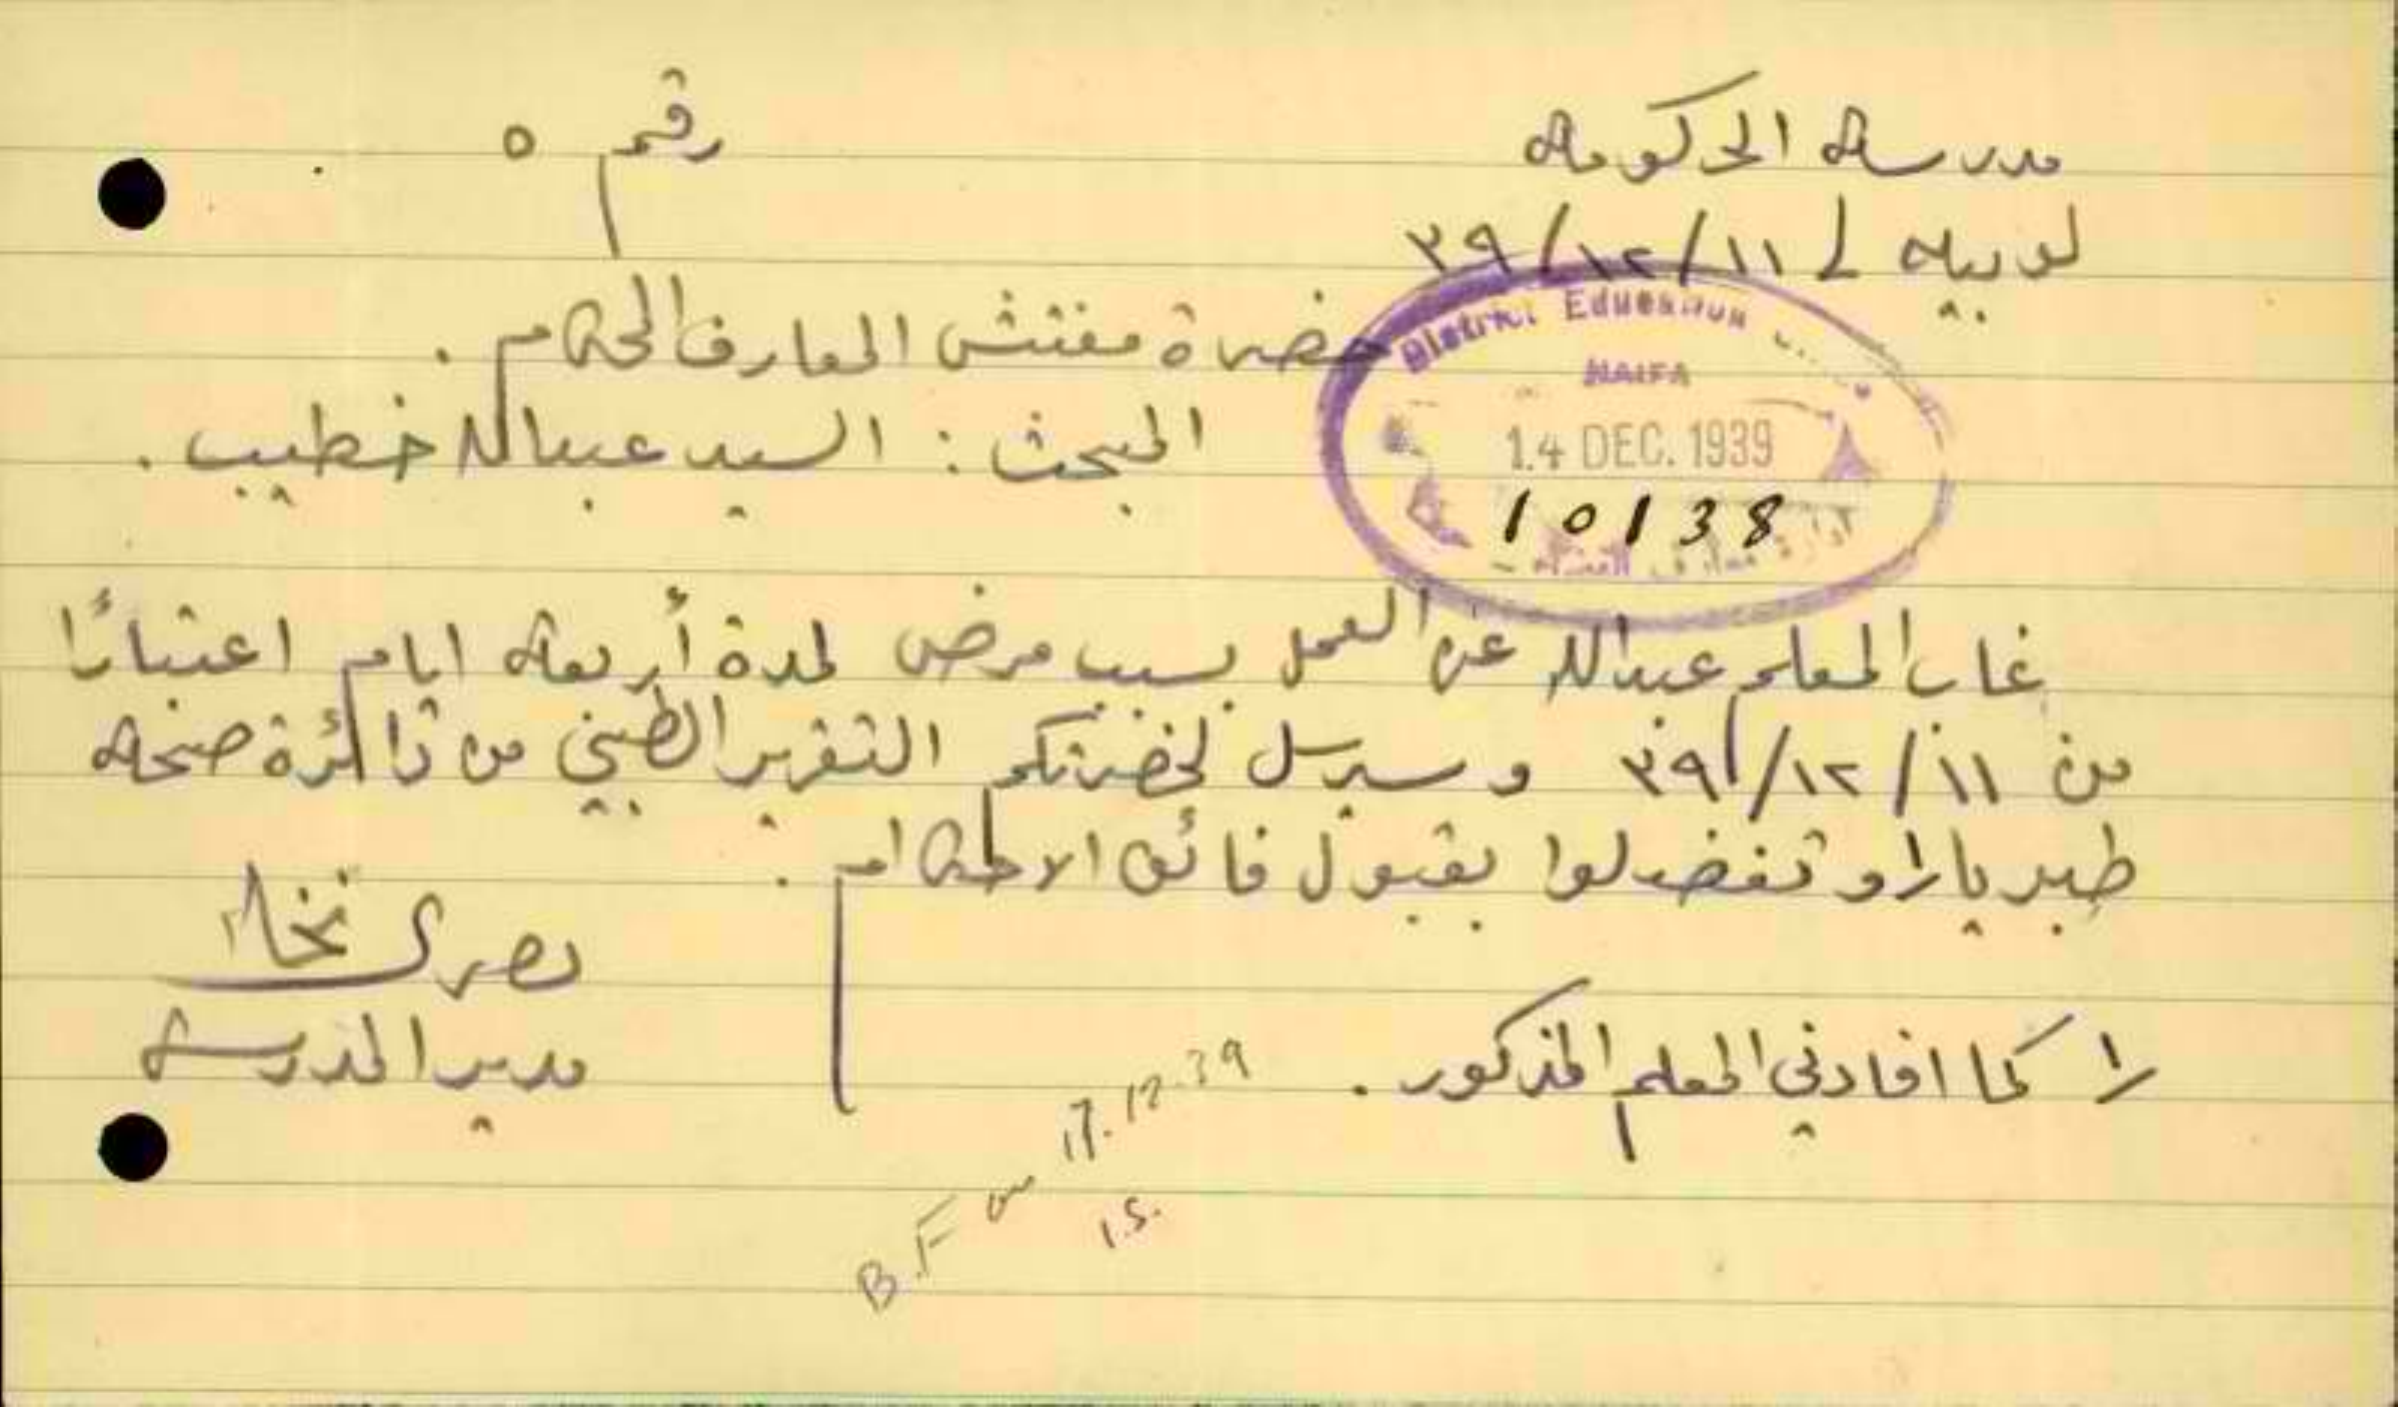 مدرسة الحكومة
رقم ٥
لوبيه في ١١/١٢/٣٩
حضرة مفتش المعارف المحترم .
المبحث : السيد عبدالله خطيب .
District Education
HAIFA
14 DEC. 1939
10138
ادارة معارف القضاء
غاب المعلم عبدالله عن العمل بسبب مرض لمدة أربعة ايام اعتبارًا
من ١١/١٢/٣٩ وسيرسل لحضرتكم التقرير الطبي من دائرة صحة
طبريا ١/ وتفضلوا بقبول فائق الاحترام .
نصري
مدير المدرسة
١/ كما افادني المعلم المذكور .
B.F on 17.12.39
I.S.